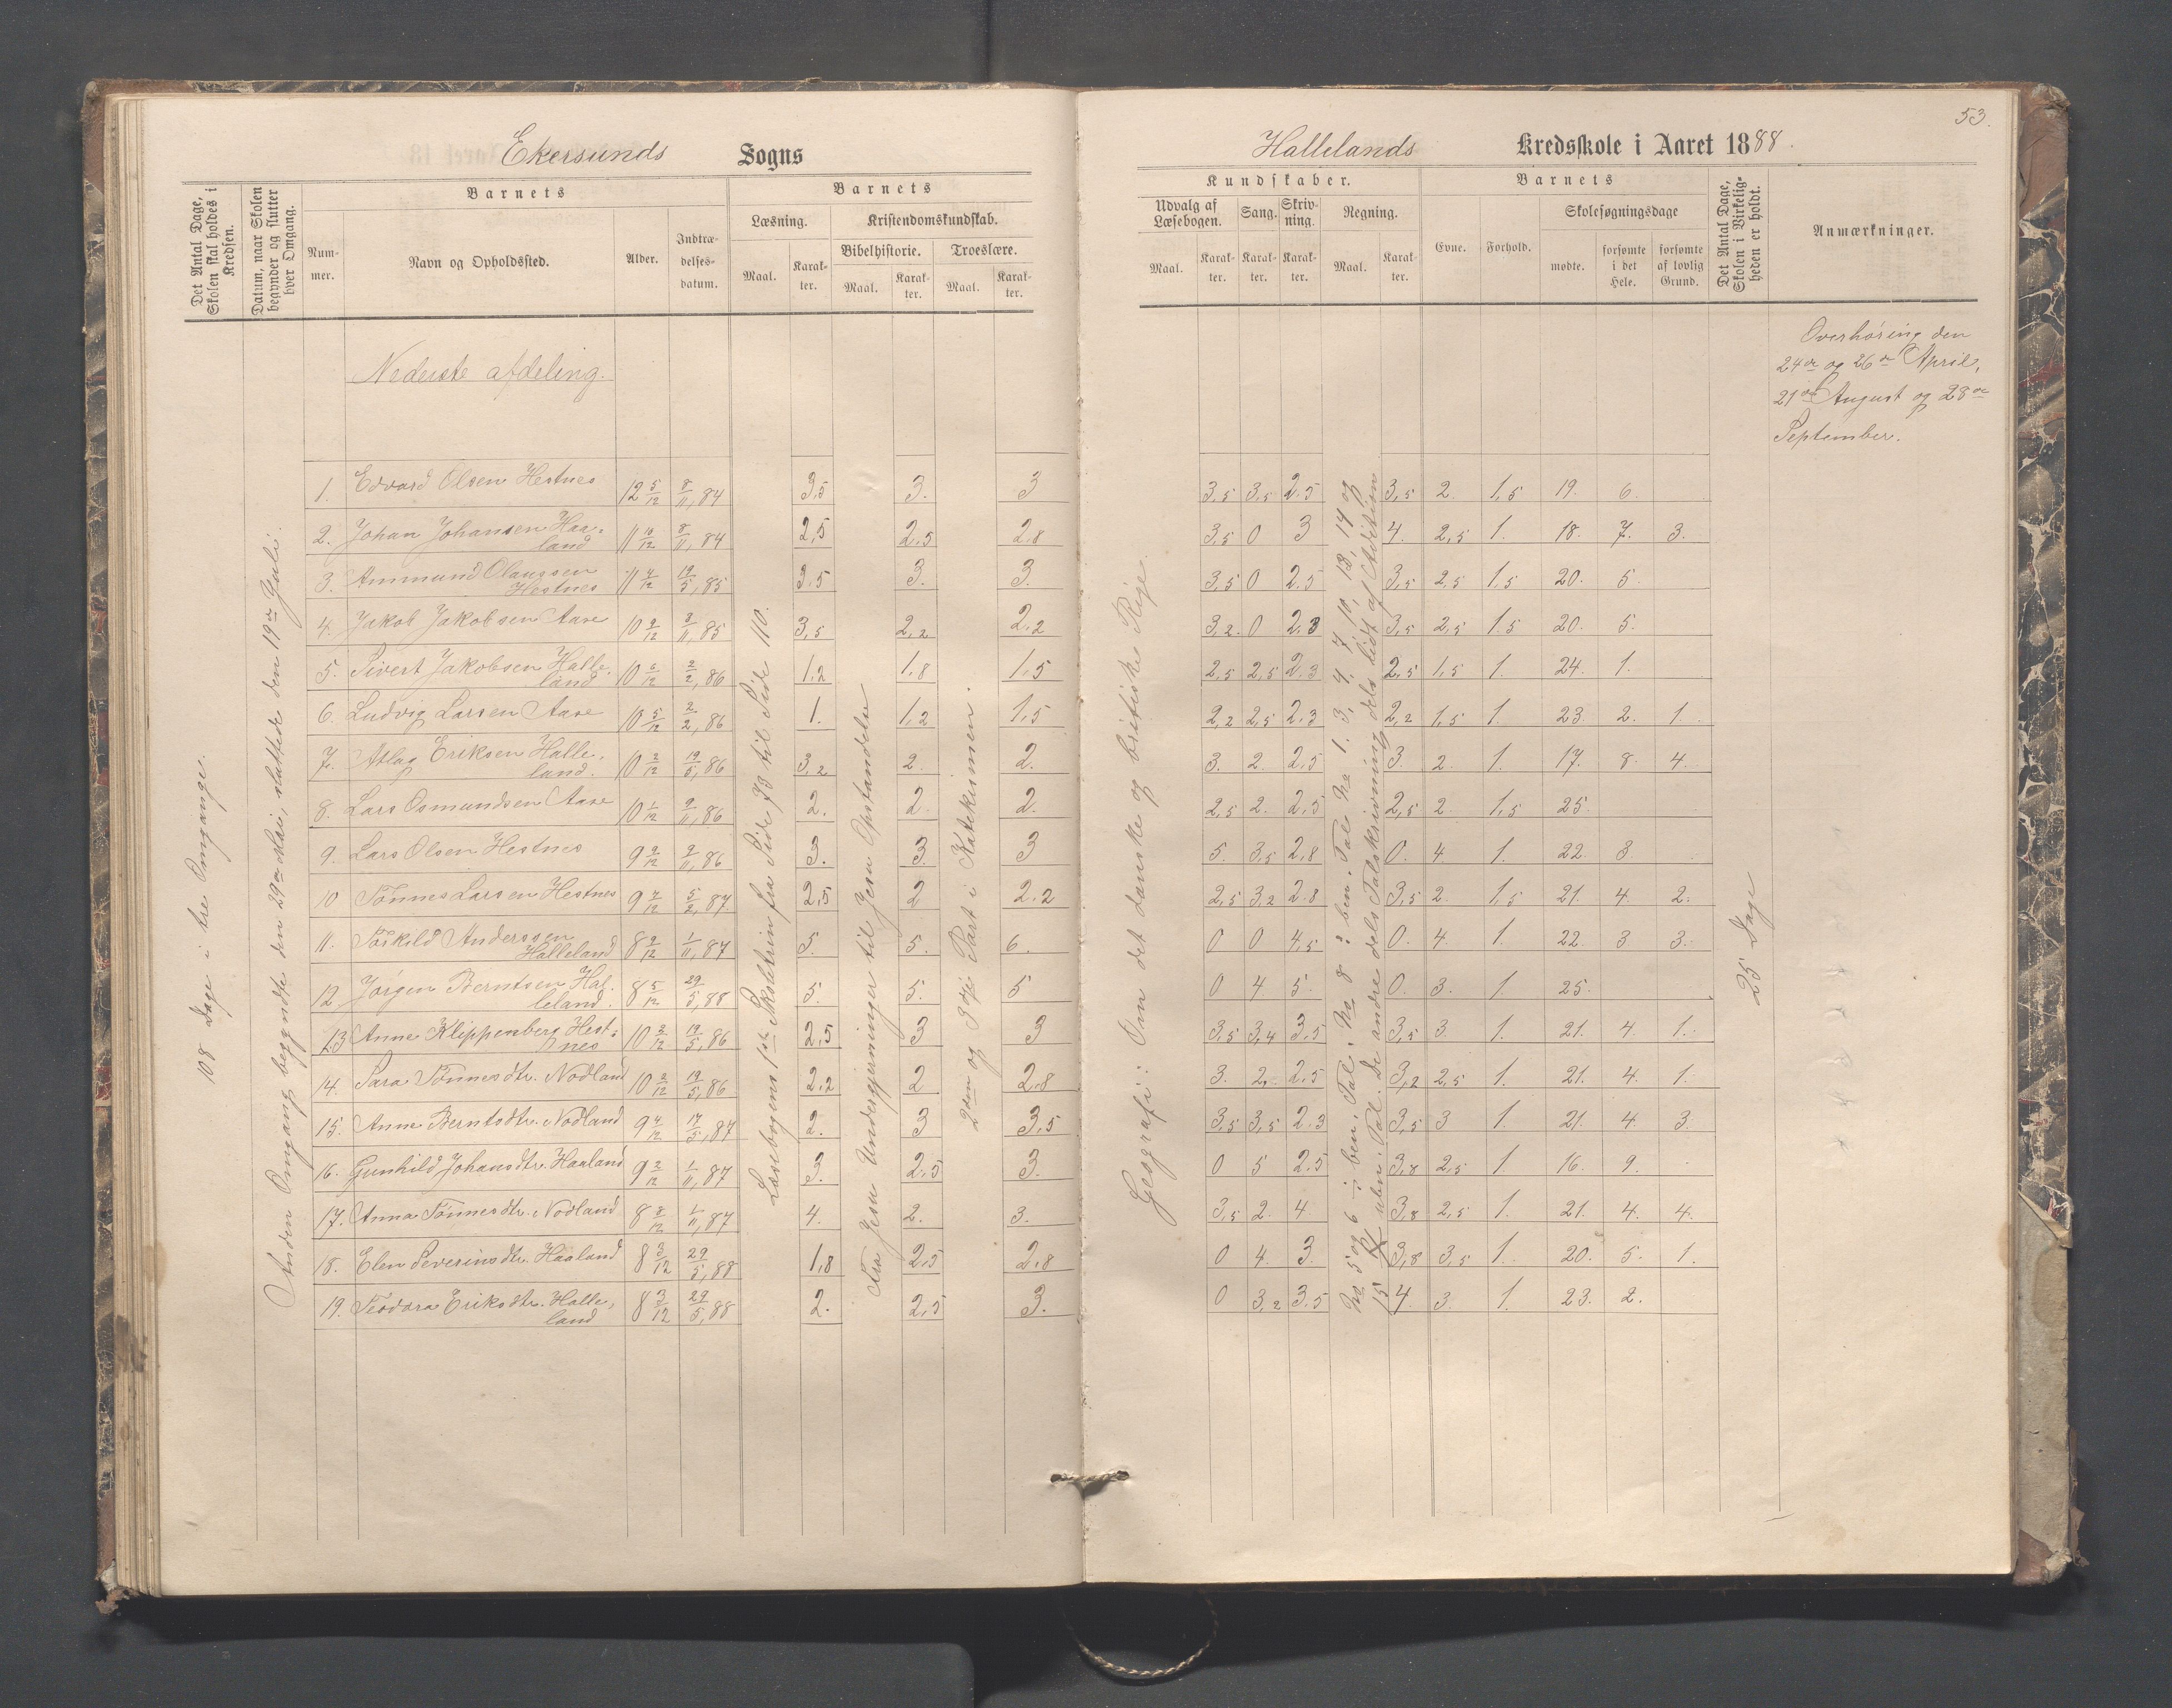 53.
Ekersunds Sogns
Hallelands Kredsskole i Aaret 1888.
Det Antal Dage, Skolen skal holdes i Kredsen.
Datum, naar Skolen begynder og slutter hver Omgang.
Barnets
Nummer.
Navn og Opholdssted.
Alder.
Indtrædelsesdatum.
Barnets
Læsning.
Maal.
Karakter.
Kristendomskundskab.
Bibelhistorie.
Maal.
Karakter.
Troeslære.
Maal.
Karakter.
Kundskaber.
Udvalg af Læsebogen.
Maal.
Karakter.
Sang.
Karakter.
Skrivning.
Karakter.
Regning.
Maal.
Karakter.
Barnets
Evne.
Forhold.
Skolesøgningsdage
mødte.
forsømte i det Hele.
forsømte af lovlig Grund.
Det Antal Dage, Skolen i Virkeligheden er holdt.
Anmærkninger.
Overhøring den
24de og 26de April,
21de August og 28de
September.
Nederste afdeling.
108 Dage i tre Omgange.
Anden Omgang begyndte den 29de Mai, sluttede den 19de Juli.
Læsebogens 1ste Skoletrin fra Side 78 til Side 110.
Fra Jesu Undergjerninger til Jesu Opstandelse
2den og 3die Part i Katekismen.
Geografi: Om det danske og britiske Rige.
25 Dage
1. Edvard Olsen Hestnes 12 5/12 8/11,84 3,5 3. 3 3,5 3,5 2.5 3,5 2. 1,5 19. 6.
2. Johan Johansen Haaland 11 10/12 8/11,84 2,5 2,5 2,8 3,5 0 3 4. 2,5 1. 18. 7. 3.
3. Ammund Olaussen Hestnes 11 4/12 19/5,85 3.5 3. 3. 3,5 0 2.5 3,5 2,5 1.5 20. 5.
4. Jakob Jakobsen Aase 10 9/12 2/11,85 3,5 2,2 2,2 3,2. 0 2,3 3,5 2,5 1.5 20. 5.
5. Sivert Jakobsen Halleland 10 6/12 2/2,86 1,2 1,8 1,5 2,5 2,5 2.3 2,5 1,5 1. 24. 1.
6. Ludvig Larsen Aase 10 5/12 2/2,86 1. 1,2 1,5 2,2 2,5 2,3 2,2 1,5 1. 23. 2. 1.
7. Atlag Eriksen Halleland. 10 2/12 19/5,86 3,2 2. 2. 3. 2. 2,5 3. 2. 1. 17. 8. 4.
8. Lars Osmundsen Aase 10 1/12 2/11,86 2. 2. 2. 2,5 2. 2,5 2,5 2. 1,5 25.
9. Lars Olsen Hestnes 9 9/12 2/11,86 3. 3. 3 5. 3,5 2,8 0. 4. 1. 22. 3.
10 Tønnes Larsen Hestnes 9 4/12 5/2,87 2,5 2 2.2 2,5 3,2 2.8 3,5 2. 1,5 21. 4. 2.
11. Torkild Anderssen Halleland 8 9/12 1/11,87 5. 5. 6. 0 0 4,5 0. 4. 1. 22. 3 3.
12 Jørgen Berntsen Halleland. 8 5/12 29/5,88 5. 5. 5 0 4 5. 0. 3. 1. 25.
13 Anne Klippenberg Hestnes 10 3/12 19/5,86 2,5 3 3 3,5 3,4 3,5 3,5 3. 1. 21. 4. 1.
14. Sara Tønnesdtr. Nodland 10 2/12 19/5,86 2,2 2 2,8 3. 2. 2,5 3,2 2,5 1. 21. 4. 1.
15. Anne Berntsdtr. Nodland 9 4/12 17/5,87 2. 3 3,5 3,5 3,5 2.3 3,5 3 1. 21. 4 3.
16. Gunhild Johansdtr. Haaland 9 2/12 1/11,87 3. 2,5 3. 0 5 2.5 3,8 2,5 1 16. 9.
17. Anna Tønnesdtr. Nodland 8 8/12 1/11,87 4. 2. 3. 3,5 2. 4 3,8 2,5 1. 21. 4. 4.
18. Elen Severinsdtr. Haaland 8 3/12 29/5,88 1,8 2,5 2,8 0 4. 3. 3,8 3,5 1. 20. 5. 1.
19. Teodora Eriksdtr. Halleland 8 3/12 29/5,88 2. 2,5 3. 0 3,2 3,5 4. 3. 1. 23. 2.